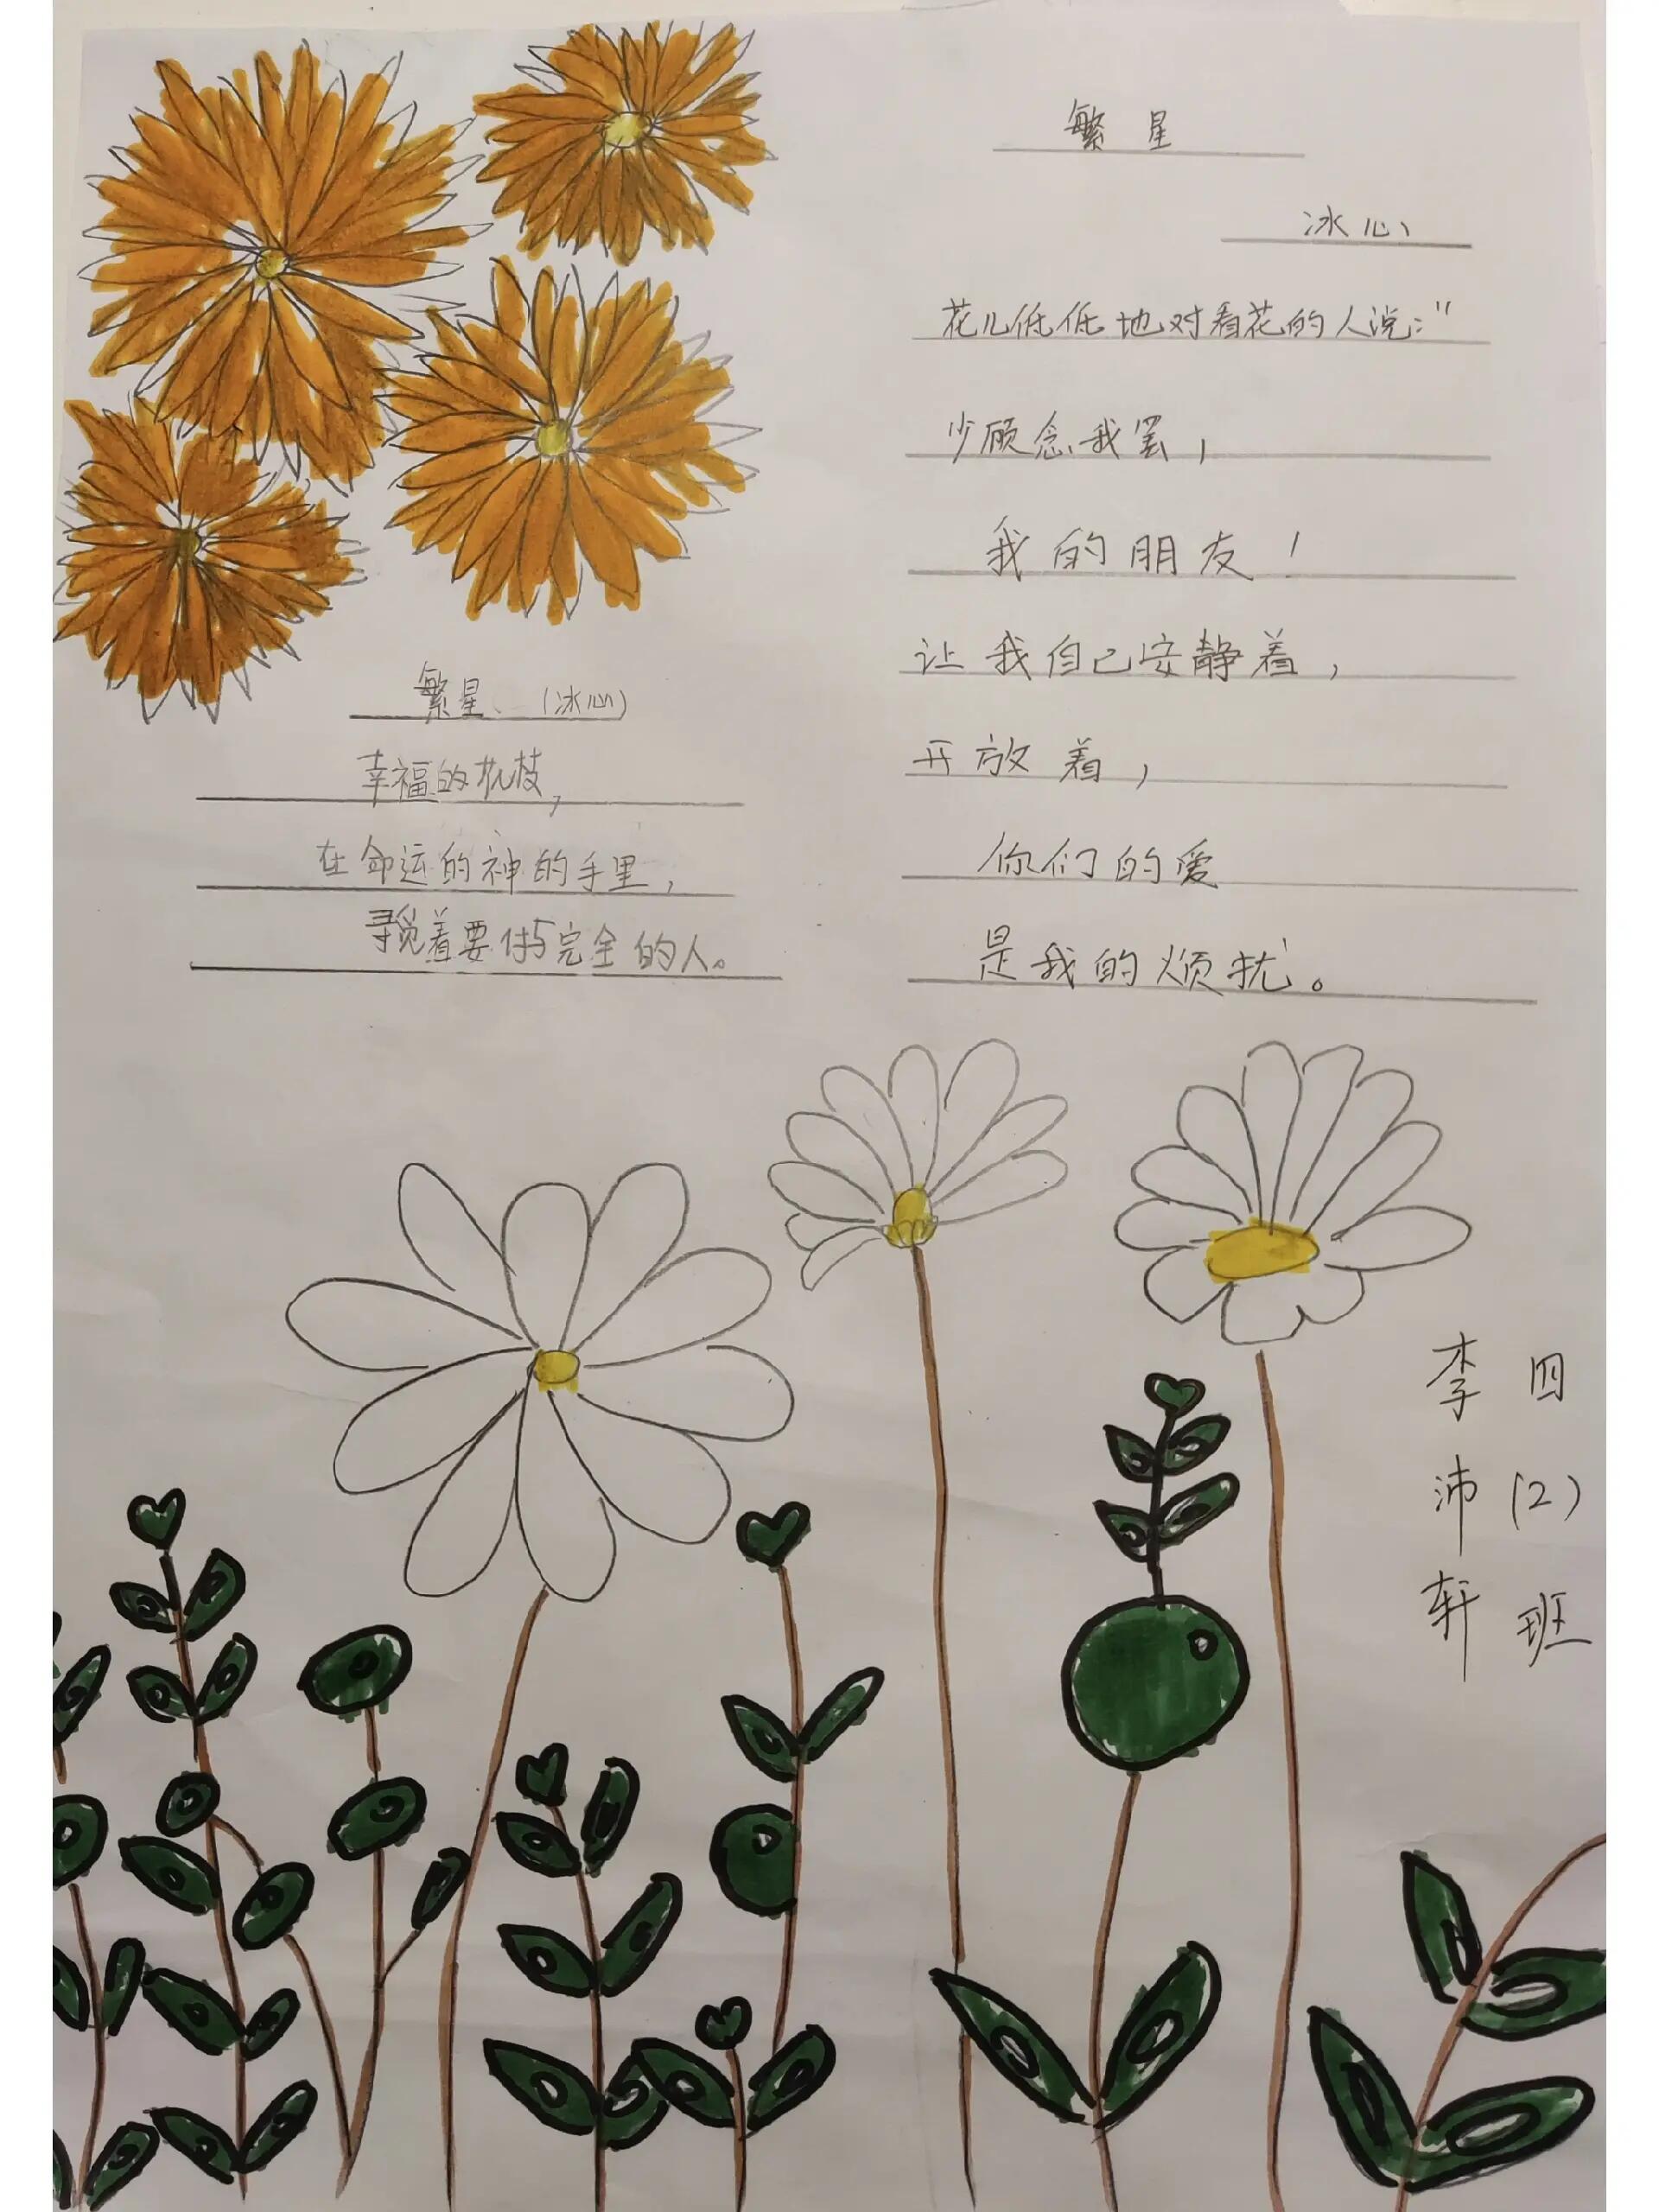 繁星
冰心
花儿低低地对看花的人说："
少顾念我罢，
我的朋友！
让我自己安静着，
开放着，
你们的爱
是我的烦扰。
繁星、（冰心）
幸福的花枝，
在命运的神的手里，
寻觅着要付与完全的人。
四（2）班
李沛轩